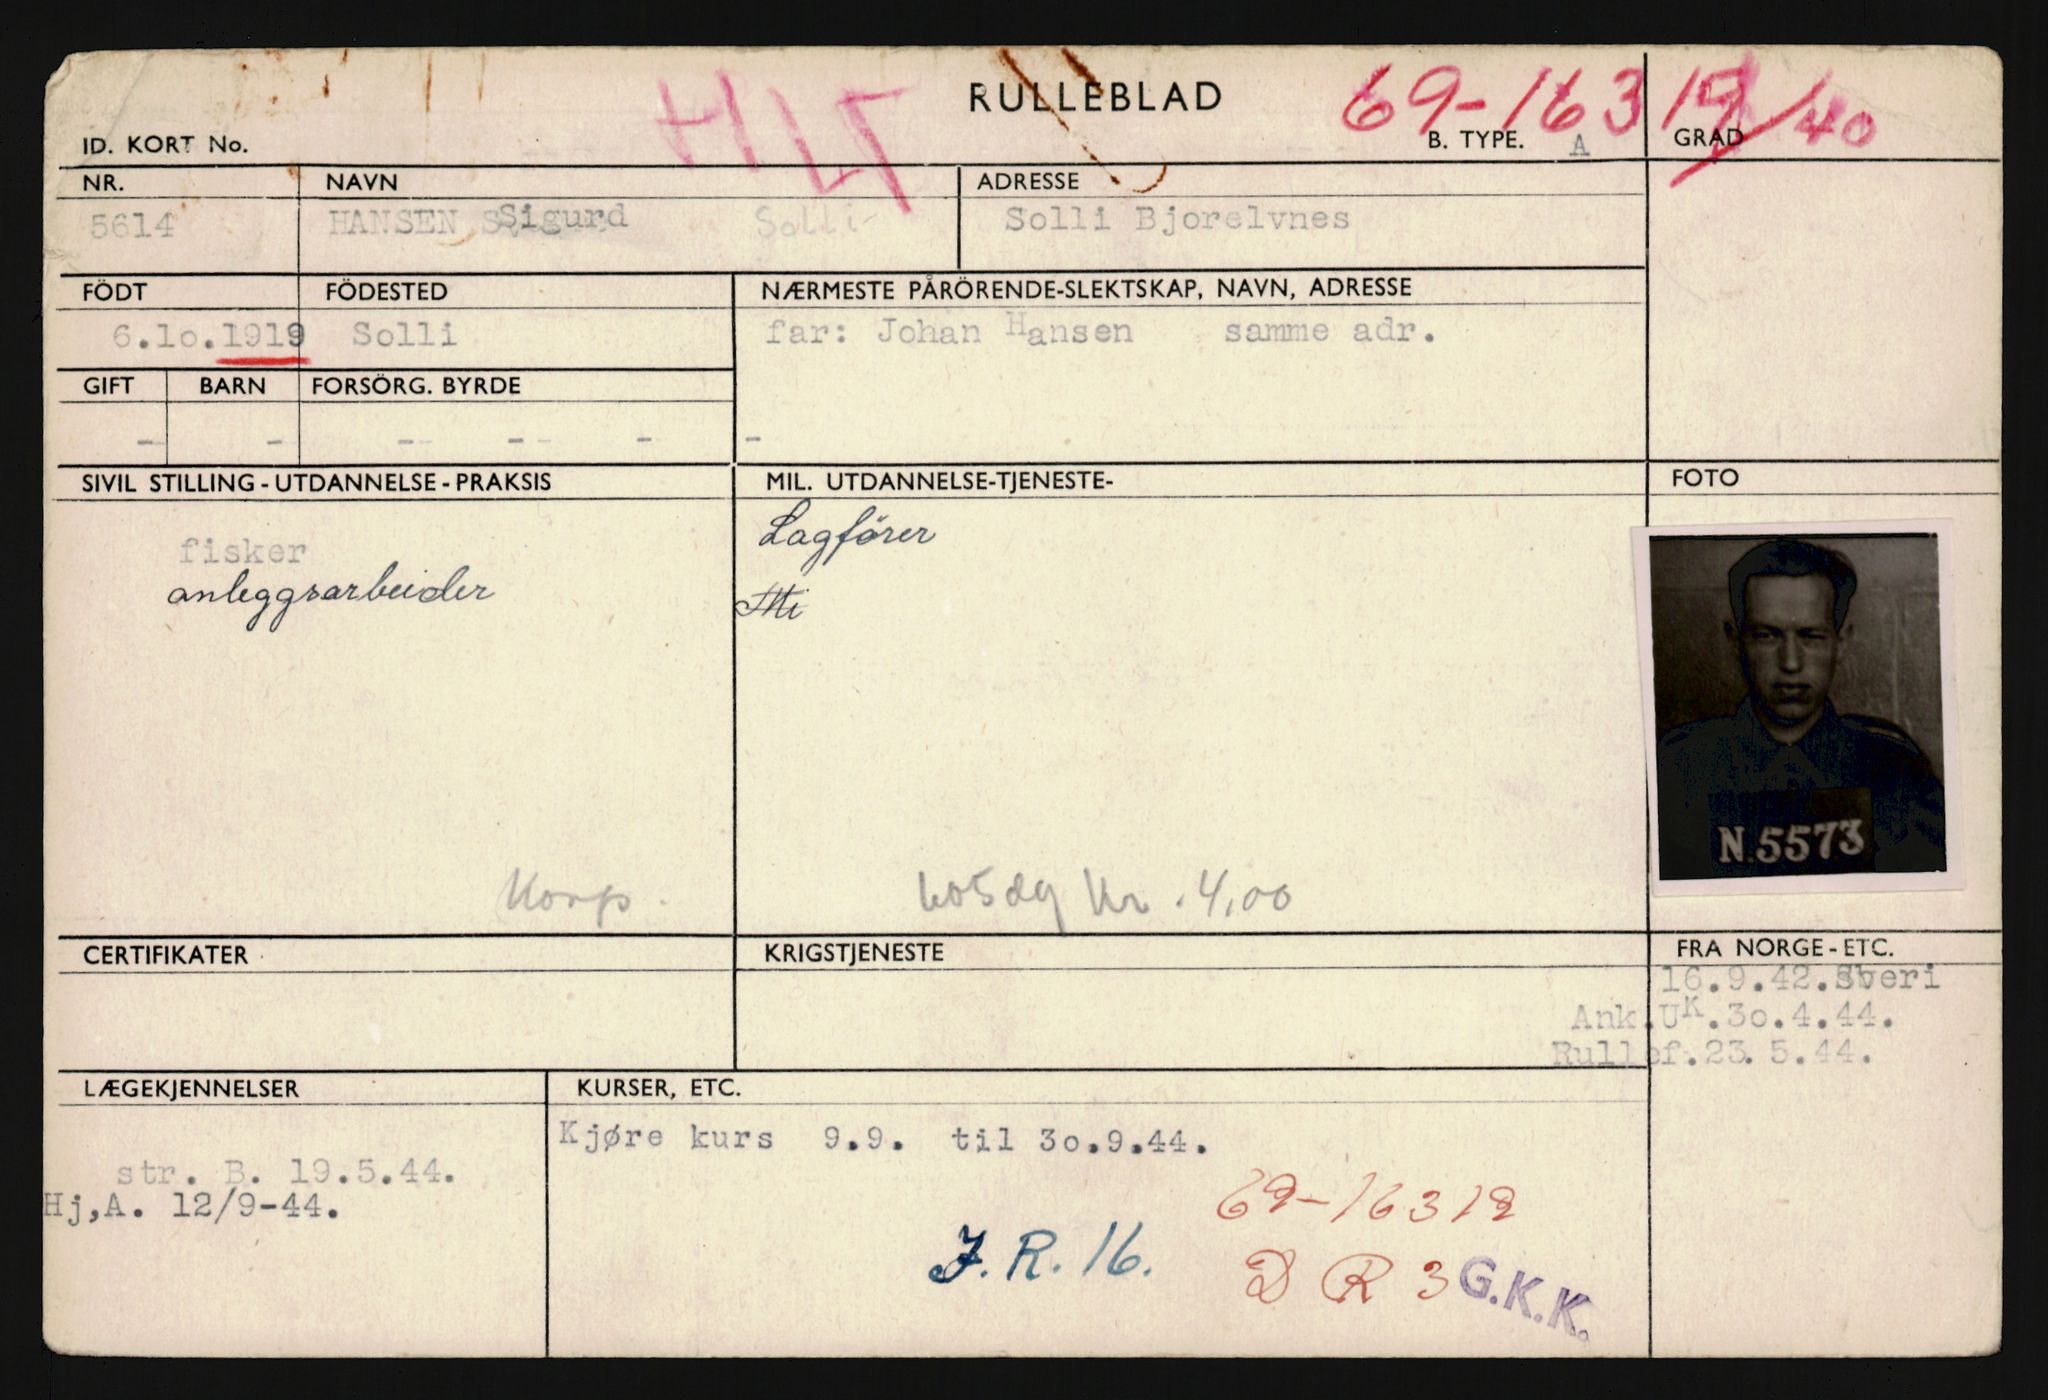 RULLEBLAD
69-16319/40
ID. KORT No.
B. TYPE. A
GRAD
NR. NAVN ADRESSE
5614 HANSEN Sigurd Solli Solli Bjorelvnes
FÖDT FÖDESTED NÆRMESTE PÅRÖRENDE-SLEKTSKAP, NAVN, ADRESSE
6.10.1919 Solli far: Johan Hansen samme adr.
GIFT BARN FORSÖRG. BYRDE
- - - - - -
SIVIL STILLING - UTDANNELSE - PRAKSIS MIL. UTDANNELSE-TJENESTE- FOTO
Lagfører
fisker
anleggsarbeider
N.5573
Korps. Kr. 4,00
CERTIFIKATER KRIGSTJENESTE FRA NORGE - ETC.
16.9.42.Sveri
Ank.UK.30.4.44.
Rullef.23.5.44.
LÆGEKJENNELSER KURSER, ETC.
Kjøre kurs 9.9. til 30.9.44.
str. B. 19.5.44.
Hj,A. 12/9-44.
69-16319
J.R. 16.
D R 3 G.K.K.